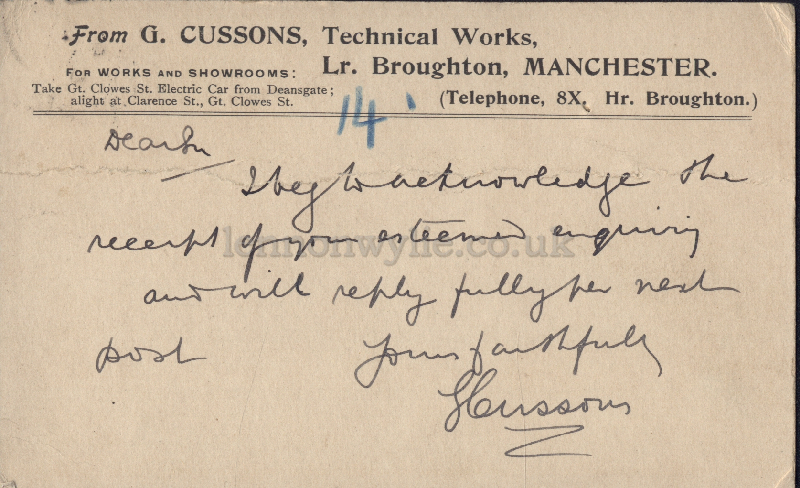 From G. CUSSONS, Technical Works,
FOR WORKS AND SHOWROOMS: Lr. Broughton, MANCHESTER.
Take Gt. Clowes St. Electric Car from Deansgate;
alight at Clarence St., Gt. Clowes St. (Telephone, 8X. Hr. Broughton.)
14
Dear Sir
I beg to acknowledge the
receipt of your esteemed enquiry
lennonwylie.co.uk
and will reply fully per next
post Yours faithfully
GCussons